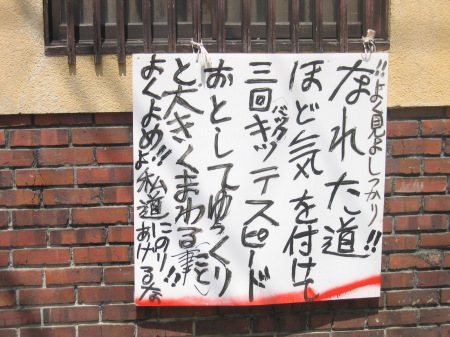 !!よく見よしっかり!!
なれた道
ほど気を付けて
三回バックキッテスピード
おとしてゆっくり
と大きくまわること!!
よくよめよ!!私道にのりあげるな